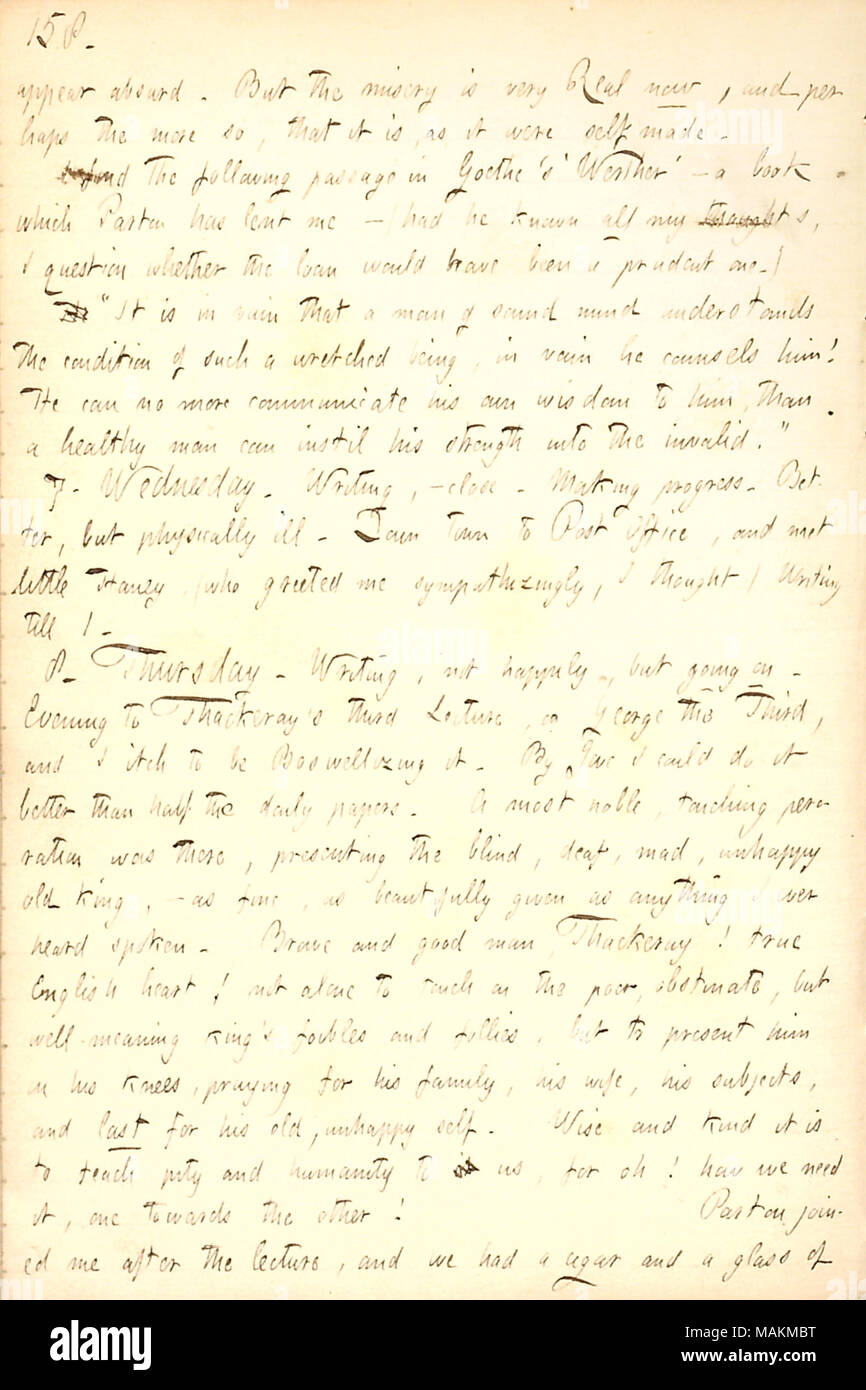 158.
appear absurd. But the misery is very Real now, and per
haps the more so, that it is, as it were self made.
I find the following passage in Goethe's 'Werther' – a book
which Parton has lent me – (had he known all my thoughts,
I question whether the loan would have been a prudent one.)
"It is in vain that a man of sound mind understands
the condition of such a wretched being, in vain he counsels him!
He can no more communicate his own wisdom to him, than
a healthy man can instil his strength into the invalid."
7. Wednesday. Writing, – close. Making progress. Bet-
ter, but physically ill. Down town to Post Office, and met
little Haney, (who greeted me sympathizingly, I thought) Writing
till 1.
8. Thursday. Writing, not happily, but going on.
Evening to Thackeray's third Lecture, on George the Third,
and I itch to be Boswellizing it. By Jove I could do it
better than half the daily papers. A most noble, touching pero-
ration was there, presenting the blind, deaf, mad, unhappy
old King, – as fine, as beautifully given as anything I ever
heard spoken. Brave and good man, Thackeray! true
English heart! not alone to touch on the poor, obstinate, but
well-meaning king's foibles and follies, but to present him
on his knees, praying for his family, his wife, his subjects,
and last for his old, unhappy self. Wise and kind it is
to teach pity and humanity to us, for oh! how we need
it, one towards the other! Parton join-
ed me after the lecture, and we had a cigar and a glass of
alamy
Image ID: MAKMBT
www.alamy.com